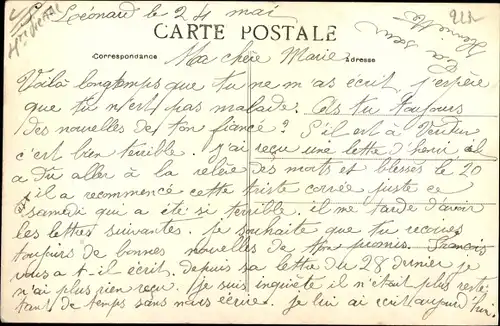 Léonard le 24 mai
222
CARTE POSTALE
Correspondance
adresse
Ma chère Marie
Ta sœur
Henriette
Hte Vienne
Voilà longtemps que tu ne m'as écrit, j'espère
que tu n'est pas malade. As tu toujours
des nouvelles de ton fiancé? S'il est à Verdun
c'est bien terrible. j'ai reçu une lettre d'henri il
a du aller à la relève des morts et blessés le 20
et il a recommencé cette triste corvée juste ce
samedi qui a été si terrible, il me tarde d'avoir
les lettres suivantes. je souhaite que tu reçoives
toujours de bonnes nouvelles de ton promis. François
vous a t-il écrit, depuis sa lettre du 28 dernier je
n'ai plus rien reçu. Je suis inquiète il n'était plus resté
tant de temps sans nous écrire. Je lui ai écrit aujourd'hui.